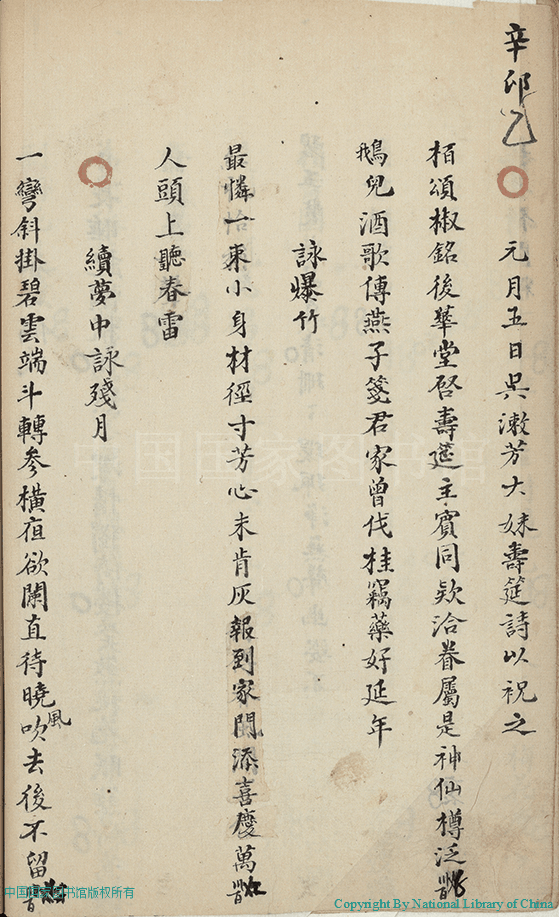 辛卯
元月五日吳漱芳大妹壽筵詩以祝之
栢頌椒銘後華堂啓壽筵主賓同欵洽眷屬是神仙樽泛
鵝兒酒歌傳燕子箋君家曾伐桂竊藥好延年
詠爆竹
最憐一束小身材徑寸芳心未肯灰報到家門添喜慶萬
人頭上聽春雷
續夢中詠殘月
一彎斜掛碧雲端斗轉參橫夜欲闌直待曉風吹去後不留
中国国家图书馆
中国国家图书馆版权所有
Copyright By National Library of China